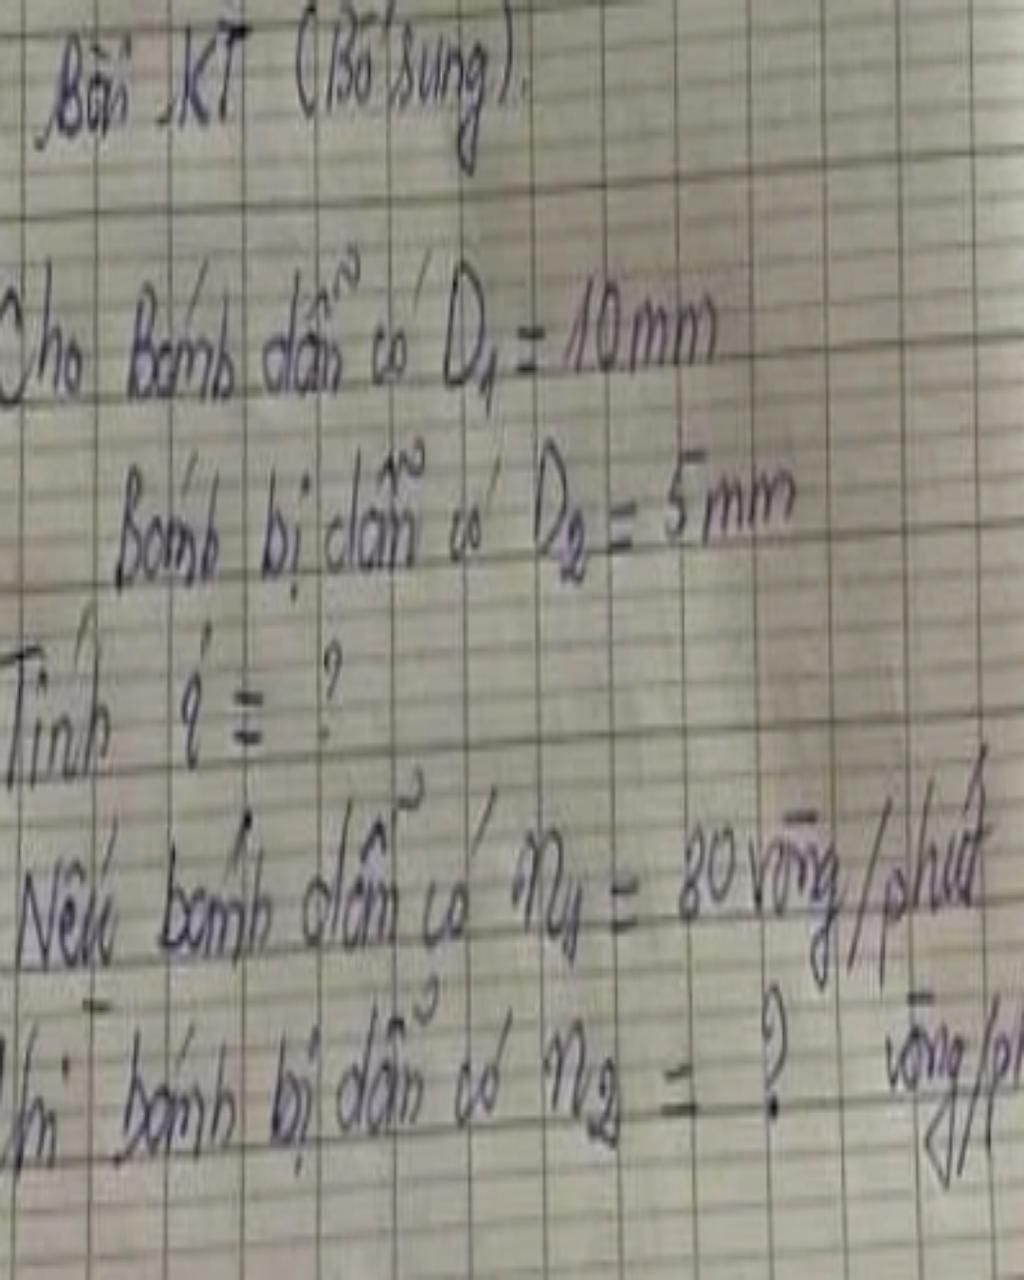 Bài KT (Bổ sung).
Cho Bánh dẫn có D₁ = 10mm
Bánh bị dẫn có D₂ = 5mm
Tính i = ?
Nếu bánh dẫn có n₁ = 80 vòng/phút
thì bánh bị dẫn có n₂ = ? vòng/ph